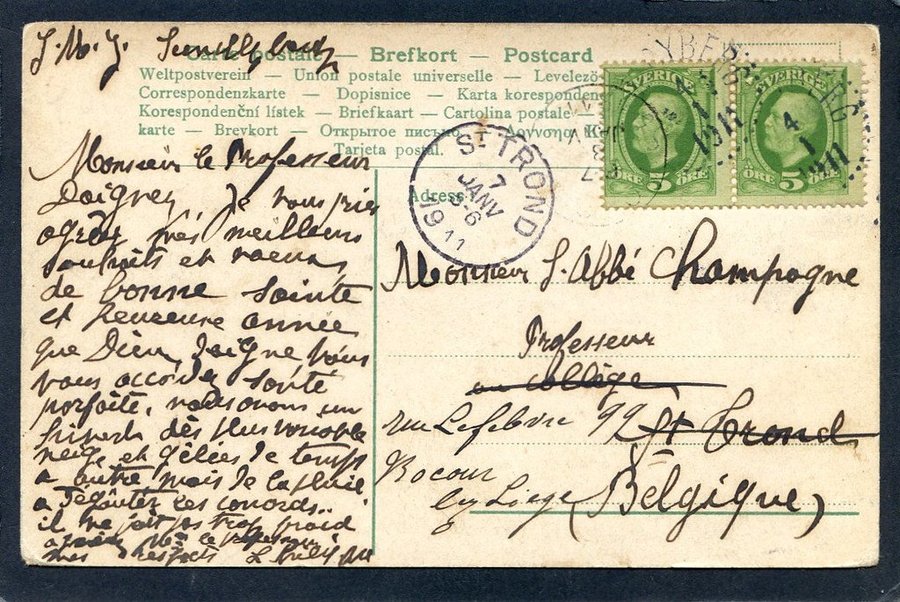 J. M. J.
Carte postale — Brefkort — Postcard
Weltpostverein — Union postale universelle — Levelező-
Correspondenzkarte — Dopisnice — Karta korespondenc
Korespondenční lístek — Briefkaart — Cartolina postale —
karte — Brevkort — Открытое письмо —
Tarjeta postal.
SVERIGE
5 ÖRE
SVERIGE
5 ÖRE
4
1
1911
4
1
1911
ST TROND
7
JANV
5-6
1911
Adresse
Monsieur le Professeur
Daignez Je vous prie
agréer mes meilleurs
souhaits et voeux
de bonne sainte
et heureuse année
que Dieu daigne
vous accorder santé
parfaite, nous avons un
superbe des plus
neige et gélées de temps
à autre mais de la pluie
à
il ne fait pas trop froid
Mr le
mes respects
Monsieur l'Abbé Champagne
Professeur
au collège
rue Lefebvre 99 St Trond
Rocour
by Liege (Belgique)